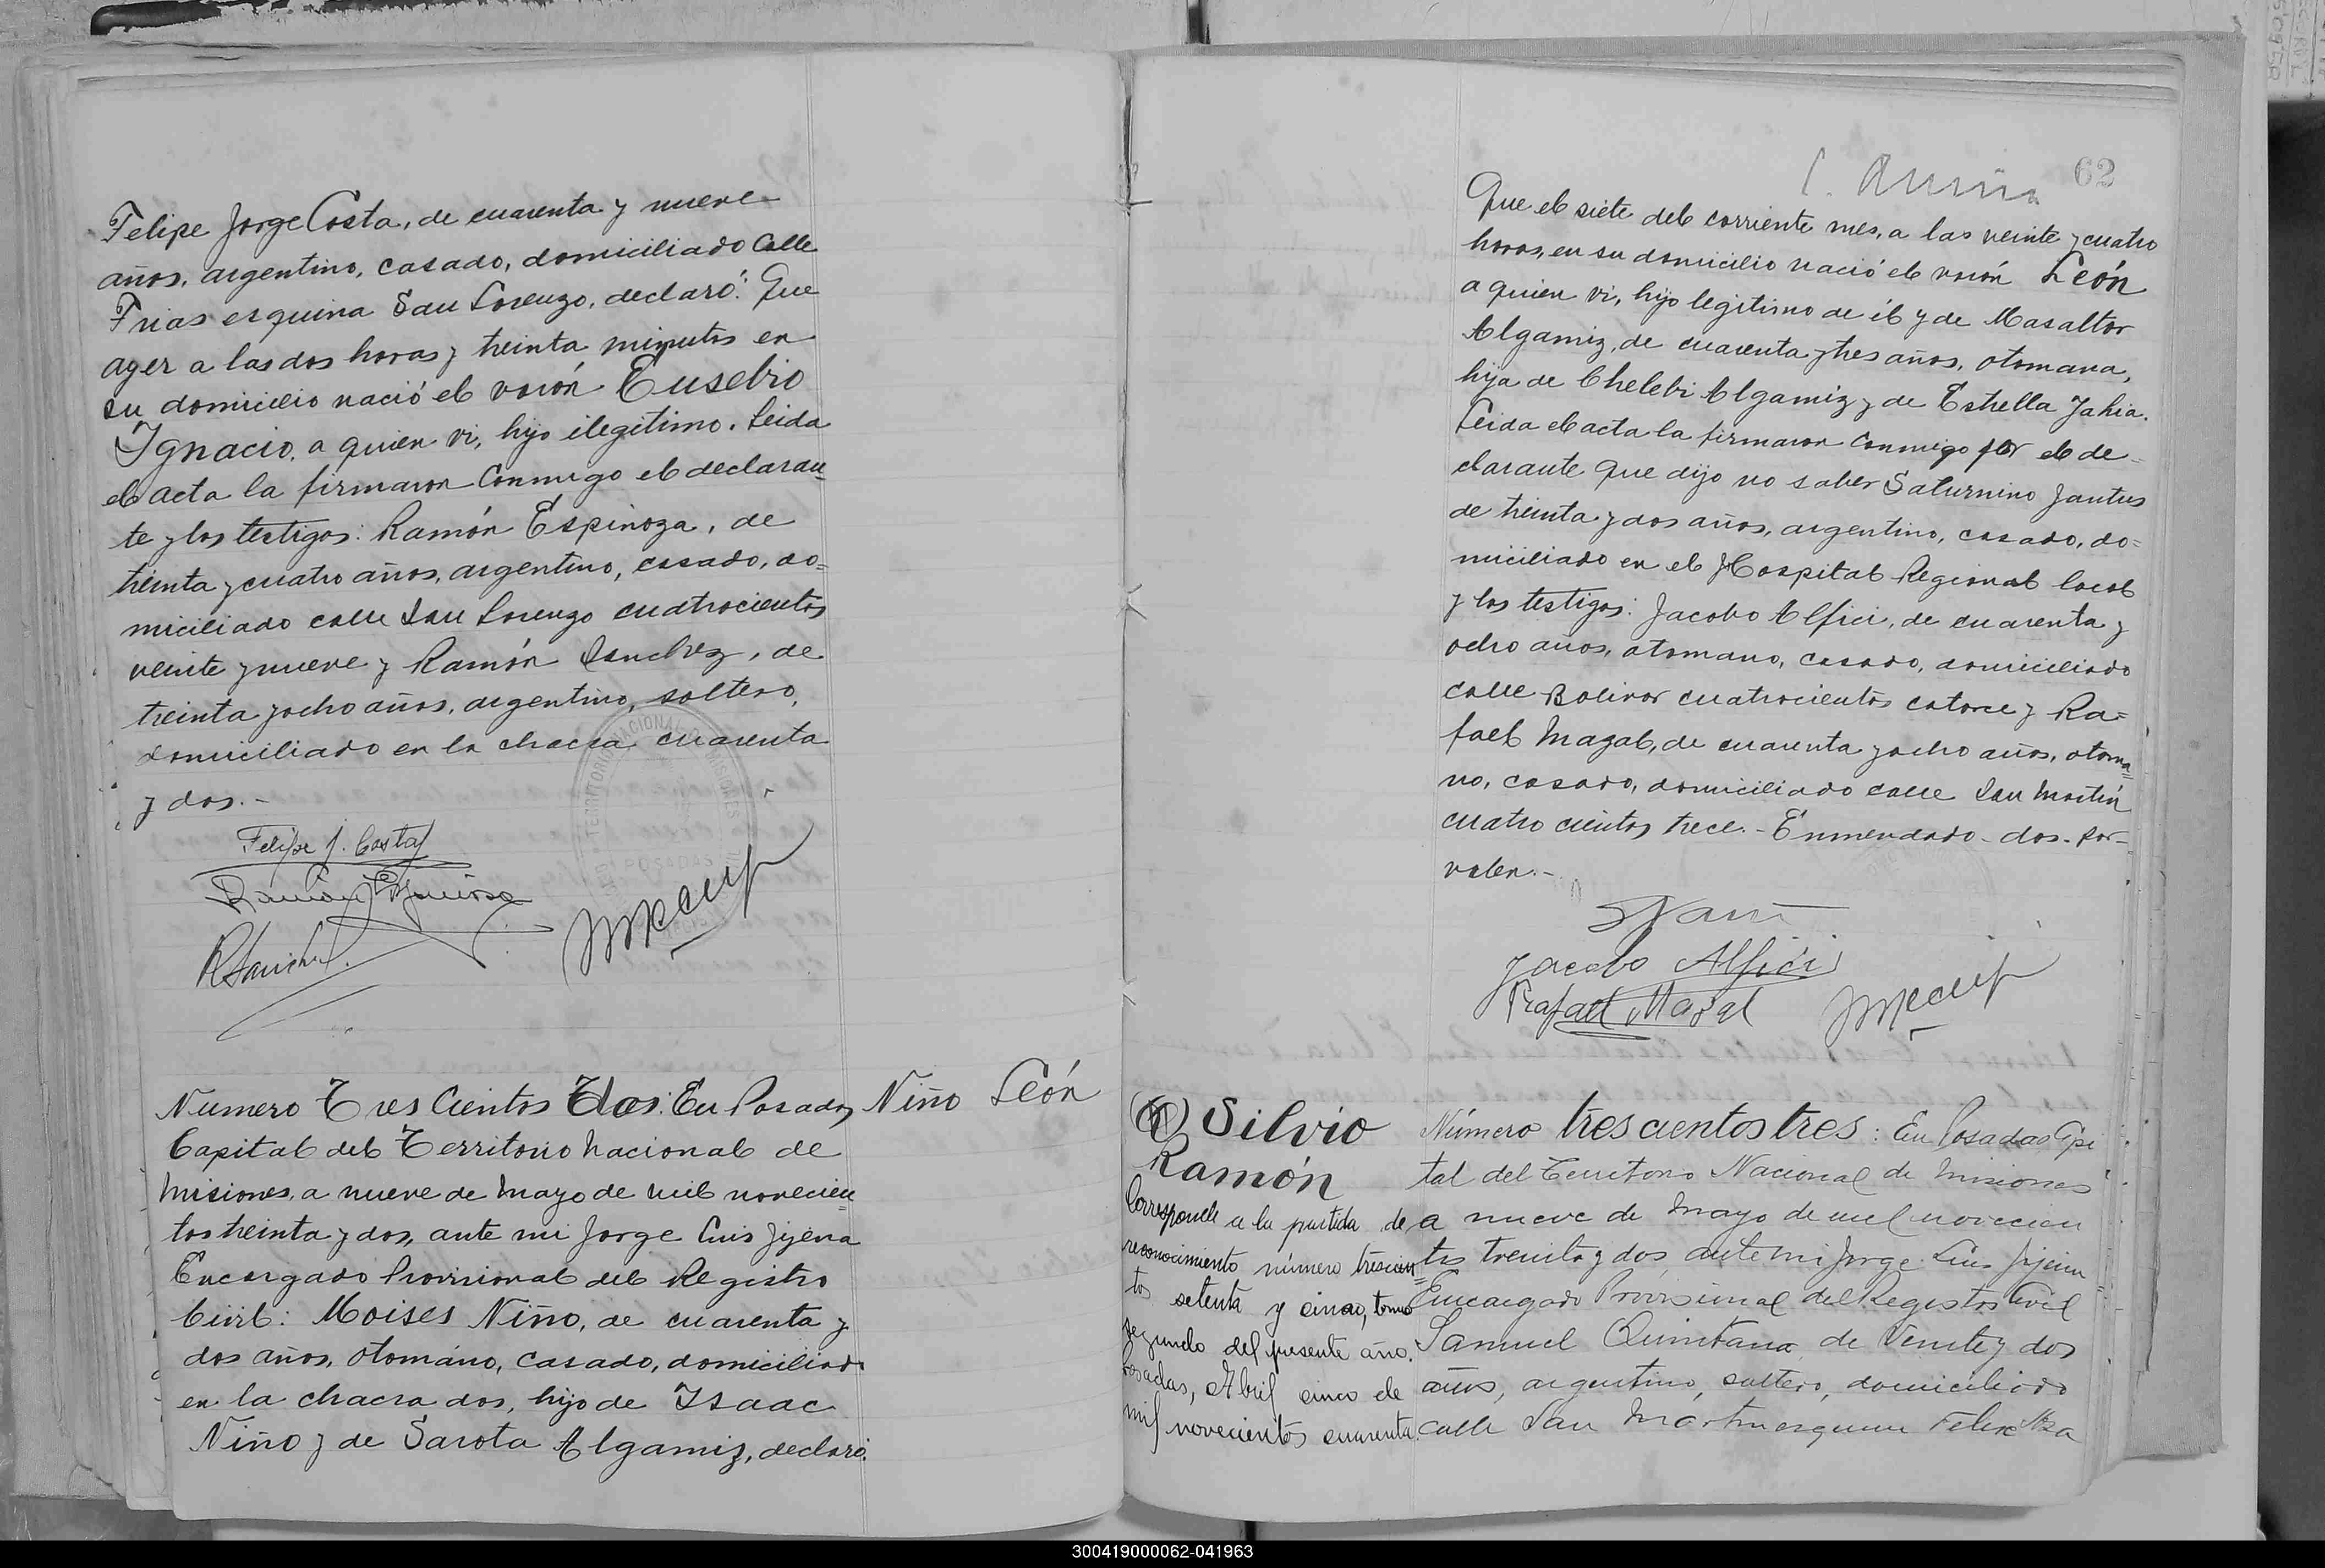 Felipe Jorge Costa, de cuarenta y nueve
años, argentino, casado, domiciliado Calle
Frias esquina San Lorenzo, declaró: Que
ayer a las dos horas y treinta minutos en
su domicilio nació el varón Eusebio
Ignacio, a quien vi, hijo ilegitimo. Leida
el acta la firmaron Conmigo el declaran=
te y los testigos: Ramón Espinoza, de
treinta y cuatro años, argentino, casado, do=
miciliado calle San Lorenzo cuatrocientos
veinte y nueve y Ramón Sanchez, de
treinta y ocho años, argentino, soltero,
domiciliado en la chacra cuarenta
y dos.-
TERRITORIO NACIONAL MISIONES
POSADAS
Felipe J. Costa
Ramón Espinosa
R Sanchez
Numero Tres Cientos dos: En Posadas
Capital del Territorio Nacional de
Misiones, a nueve de Mayo de mil novecien=
tos treinta y dos, ante mi Jorge Luis Jijena
Encargado Provisional del Registro
Civil: Moises Niño, de cuarenta y
dos años, otomano, casado, domiciliado
en la chacra dos, hijo de Isaac
Niño y de Sarota Algamiz, declaró:
Niño León
62
Que el siete del corriente mes, a las veinte y cuatro
horas, en su domicilio nació el varón León
a quien vi, hijo legitimo de él y de Masaltor
Algamiz, de cuarenta y tres años, otomana,
hija de Chelebi Algamiz y de Estrella Jahia.
Leida el acta la firmaron Conmigo por el de=
clarante que dijo no saber Saturnino Jantus
de treinta y dos años, argentino, casado, do=
miciliado en el Hospital Regional local
y los testigos: Jacobo Alfici, de cuarenta y
ocho años, otomano, casado, domiciliado
calle Bolivar cuatrocientos catorce y Ra=
fael Mazal, de cuarenta y ocho años, otoma=
no, casado, domiciliado calle San Martín
cuatro cientos trece.- Enmendado - dos - por -
valen.-
Jacobo Alfici
Rafael Mazal
Silvio
Ramón
Corresponde a la partida de
reconocimiento número trescien=
tos setenta y cinco, tomo
segundo del presente año.
Posadas, Abril cinco de
mil novecientos cuarenta.
Número trescientos tres: En Posadas Capi
tal del Territorio Nacional de Misiones
a nueve de Mayo de mil novecien
tos treinta y dos, ante mi Jorge Luis Jijena
Encargado Provisional del Registro Civil
Samuel Quintana, de Veinte y dos
años, argentino, soltero, domiciliado
calle San Martin esquina Felix
300419000062-041963